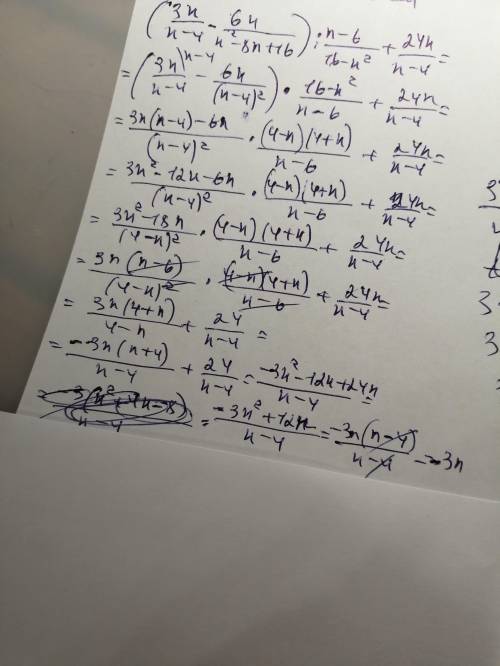 (3n/n-4 - 6n/n²-8n+16) : n-6/16-n² + 24n/n-4 =
= (3n\n-4/n-4 - 6n/(n-4)²) · 16-n²/n-6 + 24n/n-4 =
= 3n(n-4)-6n/(n-4)² · (4-n)(4+n)/n-6 + 24n/n-4 =
= 3n²-12n-6n/(n-4)² · (4-n)(4+n)/n-6 + 24n/n-4 =
= 3n²-18n/(4-n)² · (4-n)(4+n)/n-6 + 24n/n-4 =
= 3n(n-6)/(4-n)² · (4-n)(4+n)/n-6 + 24n/n-4 =
= 3n(4+n)/4-n + 24/n-4 =
= -3n(n+4)/n-4 + 24/n-4 = -3n²-12n+24n/n-4 =
= -3(n²+4n-8)/n-4 = -3n²+12n/n-4 = -3n(n-4)/n-4 - -3n
3
3
3